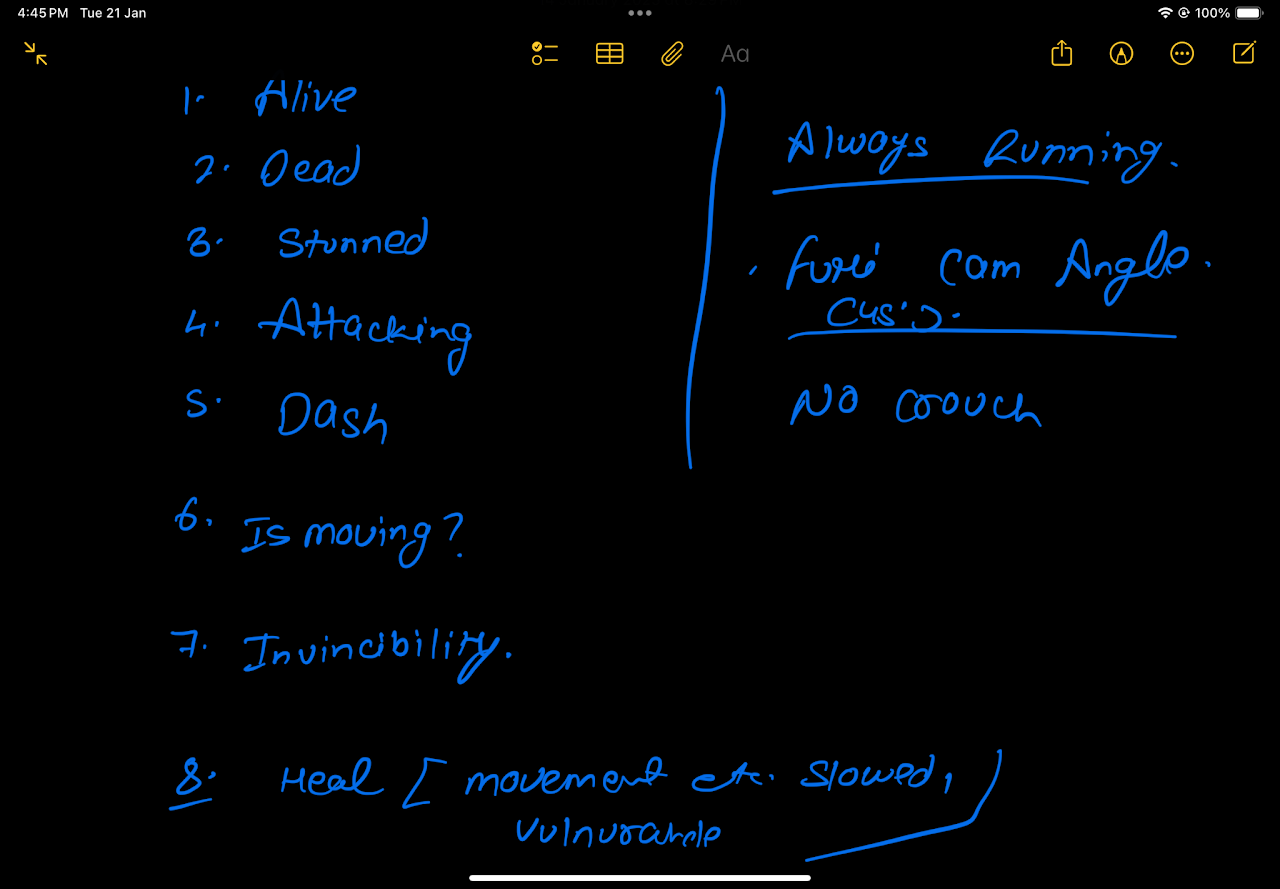 4:45 PM Tue 21 Jan
100%
Aa
1. Alive
2. Dead
3. Stunned
4. Attacking
5. Dash
6. Is moving?
7. Invincibility.
8. Heal [ movement etc. slowed,
Always Running.
Cam Angle.
No crouch